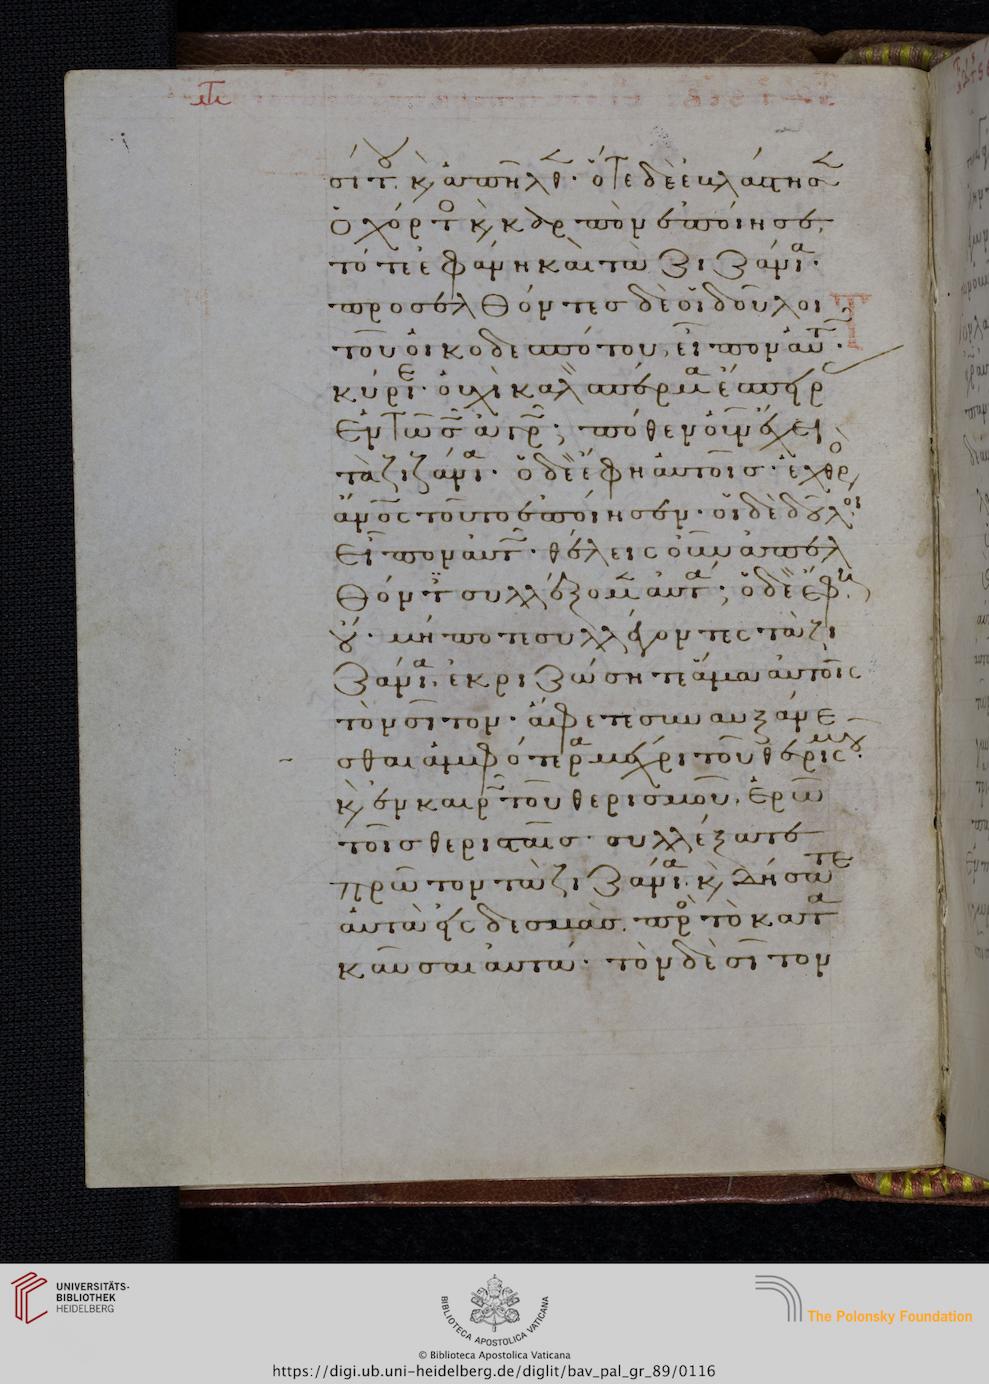 σίτου κ(αὶ) ἀπῆλθεν· ὅτε δὲ ἐβλάστησεν
ὁ χόρτος κ(αὶ) καρπὸν ἐποίησεν,
τότε ἐφάνη καὶ τὰ ζιζάνια·
προσελθόντες δὲ οἱ δοῦλοι
τοῦ οἰκοδεσπότου, εἶπον αὐτῶ·
κύριε· οὐχὶ καλὸν σπέρμα ἔσπειρας
ἐν τῶ σῶ ἀγρῶ; πόθεν οὖν ἔχει
τὰ ζιζάνια· ὁ δὲ ἔφη αὐτοῖς· ἐχθρὸς
ἄνος τοῦτο ἐποίησεν· οἱ δὲ δοῦλοι
εἶπον αὐτῶ· θέλεις οὖν ἀπελ
θόντες συλλέξομεν αὐτά; ὁ δὲ ἔφη
οὔ· μήποτε συλλέγοντες τὰ ζι
ζάνια, ἐκριζώσητε ἅμα αὐτοῖς
τὸν σῖτον· ἄφετε συναυξάνε
σθαι ἀμφότερα μέχρι τοῦ θερισμοῦ·
κ(αὶ) ἐν καιρῶ τοῦ θερισμοῦ, ἐρῶ
τοῖς θερισταῖς· συλλέξατε
πρῶτον τὰ ζιζάνια κ(αὶ) δήσατε
αὐτὰ εἰς δεσμὰς πρὸς τὸ κατα
καῦσαι αὐτά· τὸν δὲ σῖτον
UNIVERSITÄTS-
BIBLIOTHEK
HEIDELBERG
BIBLIOTECA APOSTOLICA VATICANA
The Polonsky Foundation
© Biblioteca Apostolica Vaticana
https://digi.ub.uni-heidelberg.de/diglit/bav_pal_gr_89/0116